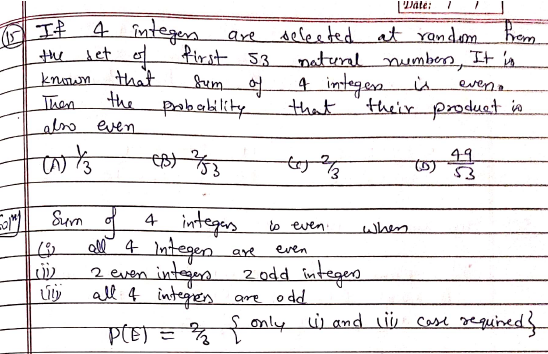 Date: / /
(15) If 4 integers are selected at random from
the set of first 53 natural numbers, It is
known that sum of 4 integers is even.
Then the probability that their product is
also even
(A) 1/3 (B) 2/53 (C) 2/3 (D) 49/53
Sol^n) Sum of 4 integers is even when
(i) all 4 Integers are even
(ii) 2 even integers 2 odd integers
(iii) all 4 integers are odd
P(E) = 2/3 { only (i) and (ii) case required}